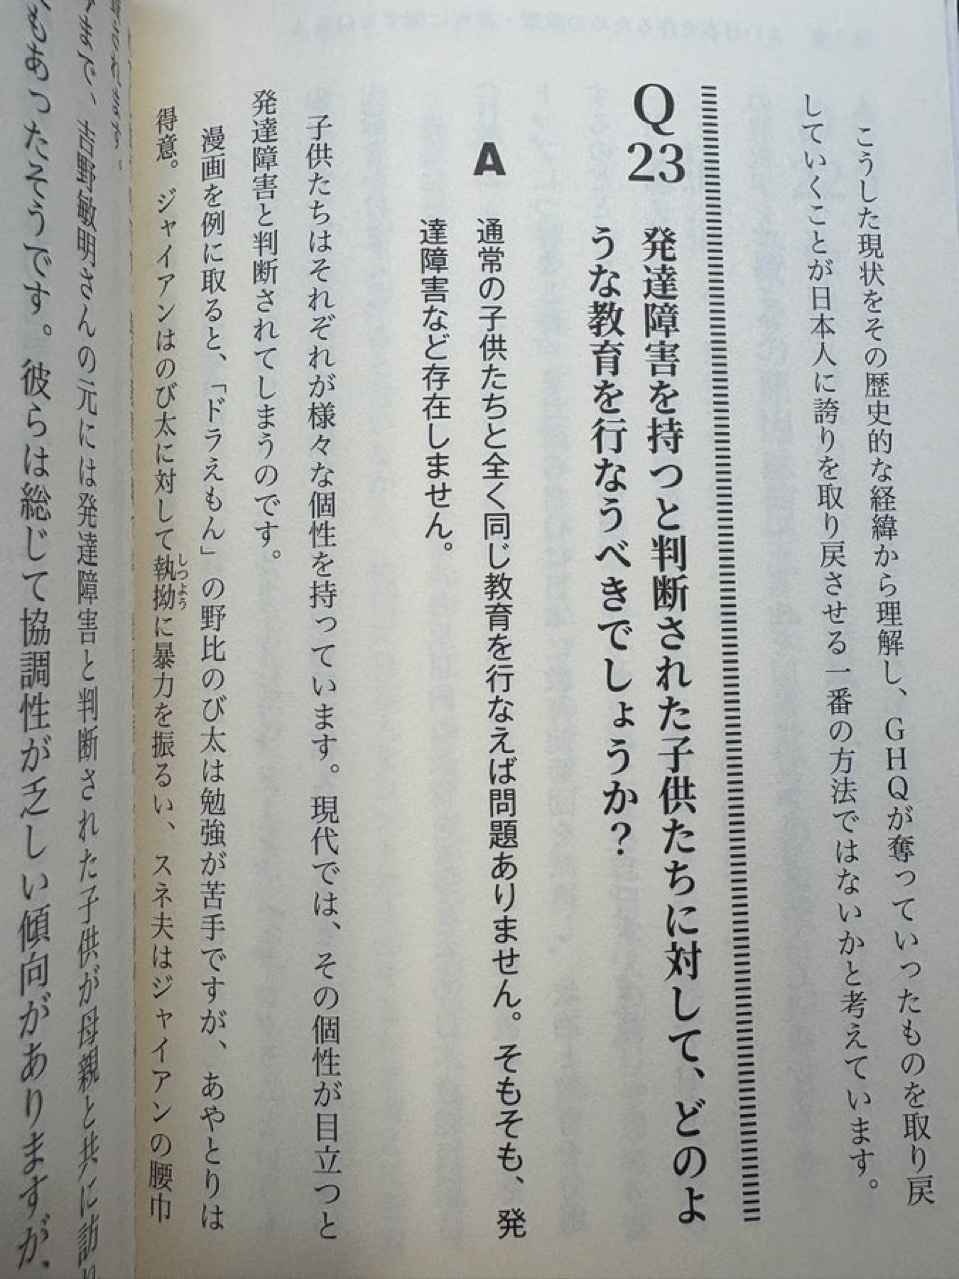 こうした現状をその歴史的な経緯から理解し、GHQが奪っていったものを取り戻
していくことが日本人に誇りを取り戻させる一番の方法ではないかと考えています。
Q23
発達障害を持つと判断された子供たちに対して、どのよ
うな教育を行なうべきでしょうか？
A
通常の子供たちと全く同じ教育を行なえば問題ありません。そもそも、発
達障害など存在しません。
子供たちはそれぞれが様々な個性を持っています。現代では、その個性が目立つと
発達障害と判断されてしまうのです。
漫画を例に取ると、「ドラえもん」の野比のび太は勉強が苦手ですが、あやとりは
得意。ジャイアンはのび太に対して執拗に暴力を振るい、スネ夫はジャイアンの腰巾
しつよう
まで、吉野敏明さんの元には発達障害と判断された子供が母親と共に訪れ
もあったそうです。彼らは総じて協調性が乏しい傾向がありますが、